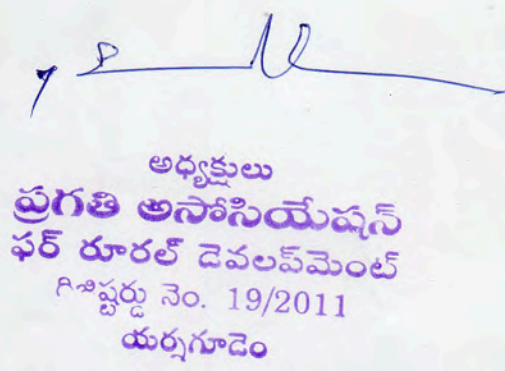 అధ్యక్షులు
ప్రగతి అసోసియేషన్
ఫర్ రూరల్ డెవలప్‌మెంట్
రిజిష్టర్డు నెం. 19/2011
యర్నగూడెం